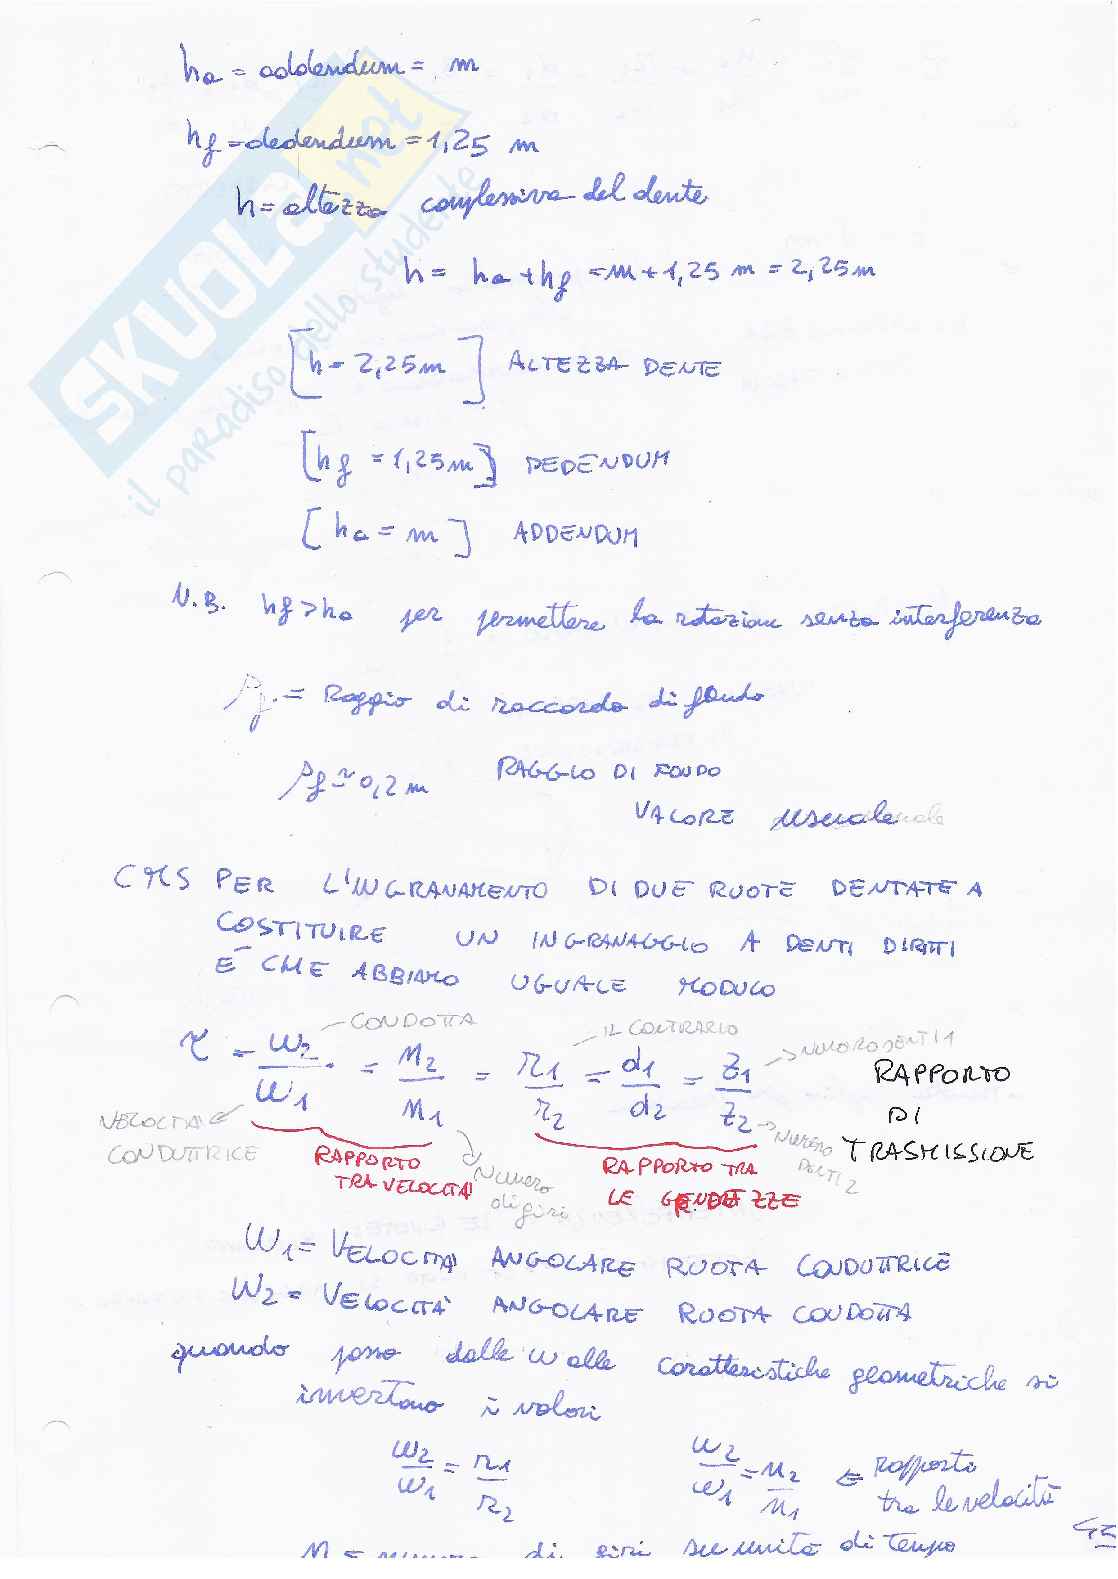 ha = addendum = m
hf = dedendum = 1,25 m
h = altezza complessiva del dente
h = ha + hf = m + 1,25 m = 2,25 m
[h = 2,25 m] ALTEZZA DENTE
[hf = 1,25 m] DEDENDUM
[ha = m] ADDENDUM
N.B. hf > ha per permettere la rotazione senza interferenza
ρf = Raggio di raccordo di fondo
ρf ≃ 0,2 m RAGGIO DI FONDO
VALORE usuale
CNS PER L'INGRANAMENTO DI DUE RUOTE DENTATE A
COSTITUIRE UN INGRANAGGIO A DENTI DIRITTI
È CHE ABBIANO UGUALE MODULO
CONDOTTA IL CONTRARIO NUMERO DENTI 1
τ = ω2/ω1 = n2/n1 = r1/r2 = d1/d2 = z1/z2 RAPPORTO DI TRASMISSIONE
VELOCITÀ CONDUTTRICE
RAPPORTO TRA VELOCITÀ
Numero di giri
RAPPORTO TRA LE GRANDEZZE
NUMERO DENTI 2
ω1 = VELOCITÀ ANGOLARE RUOTA CONDUTTRICE
ω2 = VELOCITÀ ANGOLARE RUOTA CONDOTTA
quando passo dalle ω alle caratteristiche geometriche si
invertono i valori
ω2/ω1 = r1/r2 ω2/ω1 = n2/n1 ⇐ rapporto tra le velocità
n = numero di giri su unità di tempo
SKUOLA.net
il paradiso dello studente